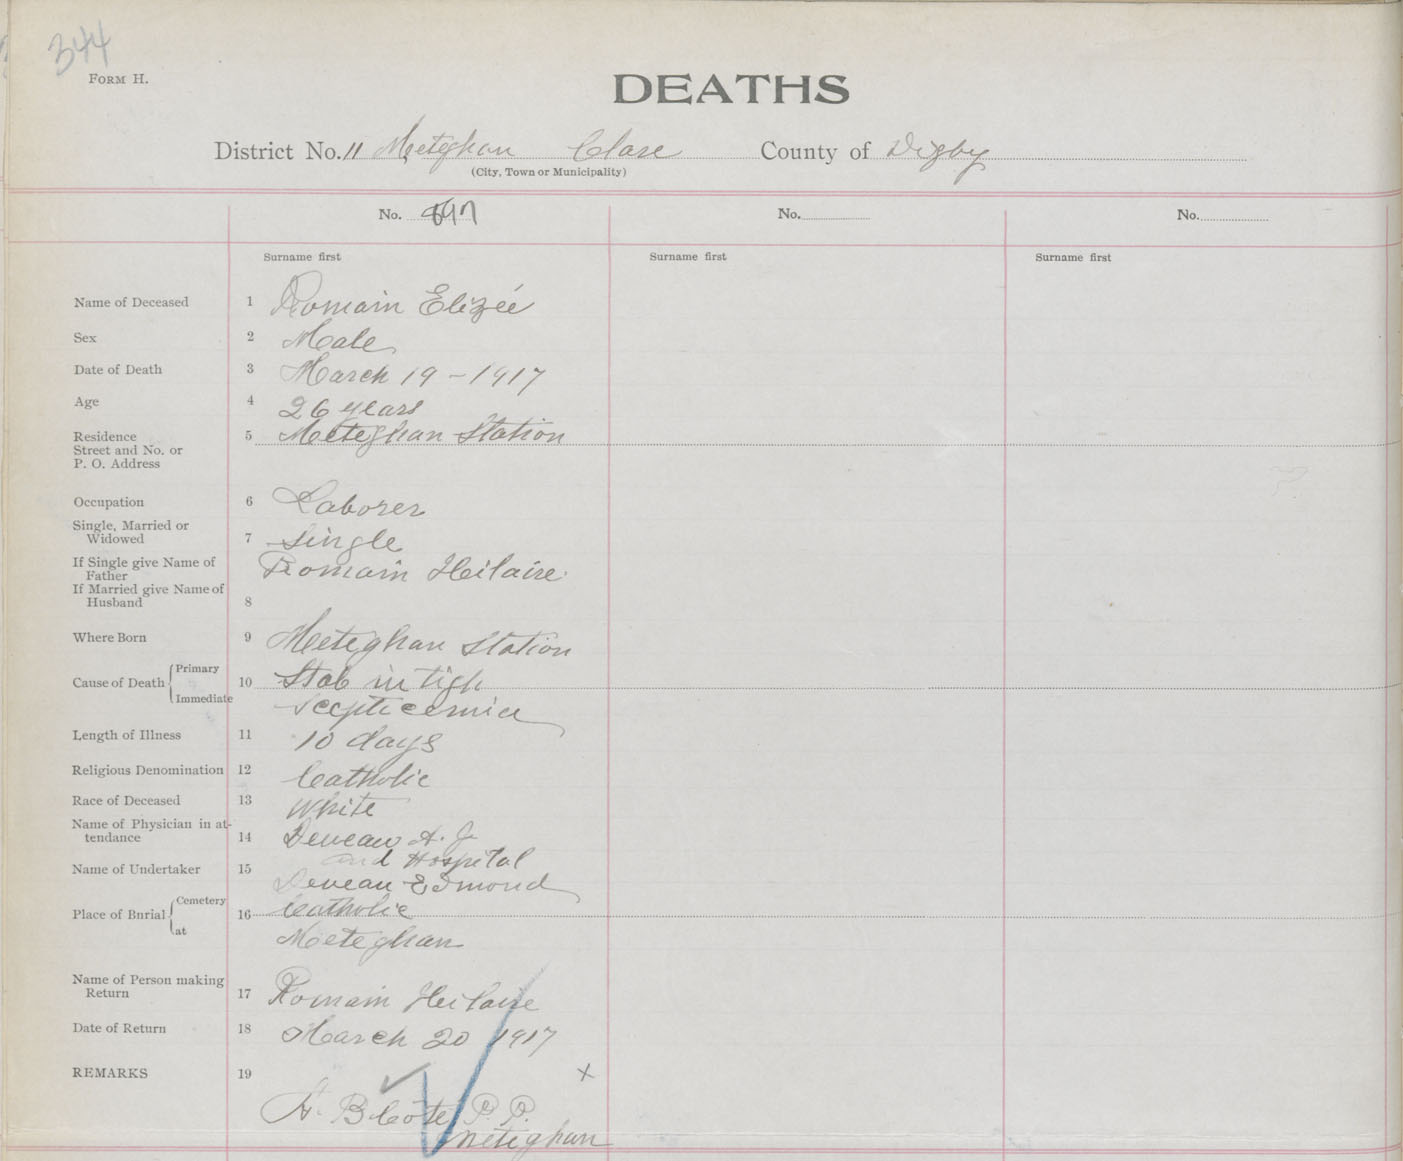 344
FORM H.
DEATHS
District No. 11 Meteghan Clare County of Digby
(City, Town or Municipality)
No. 897 No. No.
Surname first Surname first Surname first
Name of Deceased 1 Romain Elizée
Sex 2 Male
Date of Death 3 March 19 - 1917
Age 4 26 years
Residence 5 Meteghan Station
Street and No. or
P. O. Address
Occupation 6 Laborer
Single, Married or
Widowed 7 Single
If Single give Name of
Father Romain Heilaire
If Married give Name of
Husband 8
Where Born 9 Meteghan Station
Primary
Cause of Death 10 Stab in tigh
Immediate Scepticemia
Length of Illness 11 10 days
Religious Denomination 12 Catholic
Race of Deceased 13 White
Name of Physician in at-
tendance 14 Deveau A. J.
and Hospital
Name of Undertaker 15 Deveau Edmond
Cemetery
Place of Burial 16 Catholic
at Meteghan
Name of Person making
Return 17 Romain Heilaire
Date of Return 18 March 20 1917
REMARKS 19 x
A. B. Cote P. P.
Meteghan